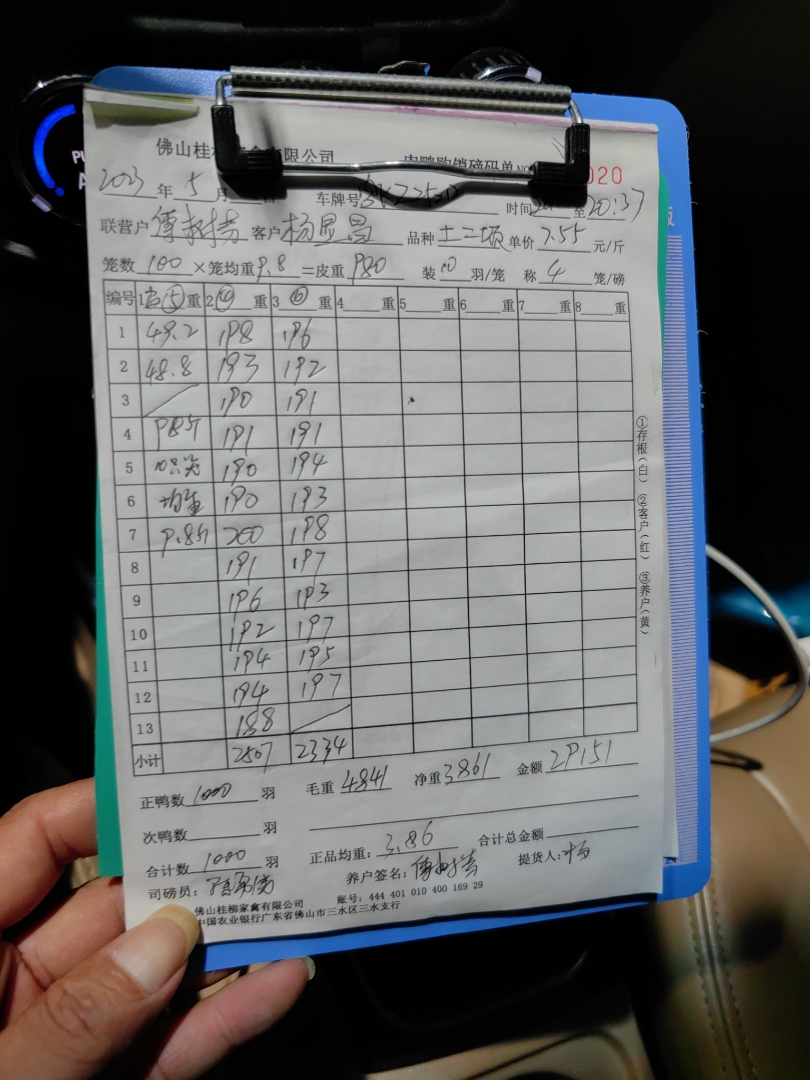 佛山桂柳家禽有限公司 肉鸭购销磅码单 NO 020
2023 年 5 月 日 车牌号 时间 至 20:37
联营户 客户 杨显昌 品种 土二顷 单价 7.55 元/斤
笼数 100 ×笼均重 9.8 =皮重 980 装 10 羽/笼 称 4 笼/磅
编号 1 ⑤ 重 2 ④ 重 3 ⑥ 重 4 重 5 重 6 重 7 重 8 重
1 49.2 198 196
2 48.8 193 192
3 190 191
4 98斤 191 191
5 10只笼 190 194
6 均重 190 193
7 9.8斤 200 198
8 191 197
9 196 193
10 192 197
11 194 195
12 194 197
13 188
小计 2507 2334
正鸭数 1000 羽 毛重 4841 净重 3861 金额 29151
次鸭数 羽
合计数 1000 羽 正品均重: 3.86 合计总金额
司磅员: 养户签名: 提货人: 杨
佛山桂柳家禽有限公司 账号: 444 401 010 400 169 29
中国农业银行广东省佛山市三水区三水支行
①存根(白) ②客户(红) ③养户(黄)